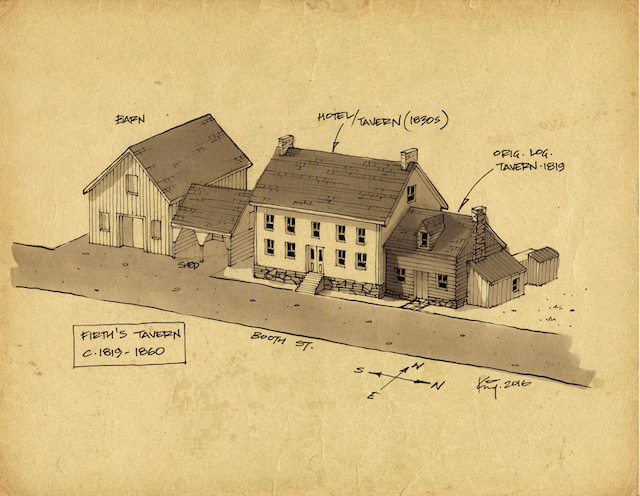 BARN
HOTEL/TAVERN (1830s)
ORIG. LOG.
TAVERN·1819
SHED
FIRTH'S TAVERN
C·1819-1860
BOOTH ST.
W
S
N
E
2016